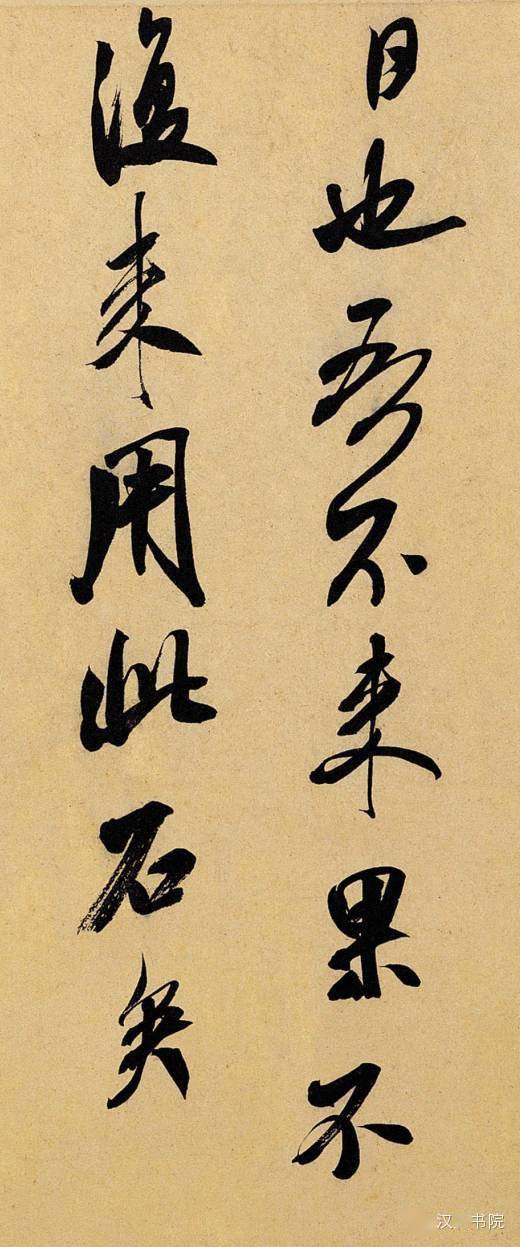 日也吾不来果不
復来用此石矣
汉、书院